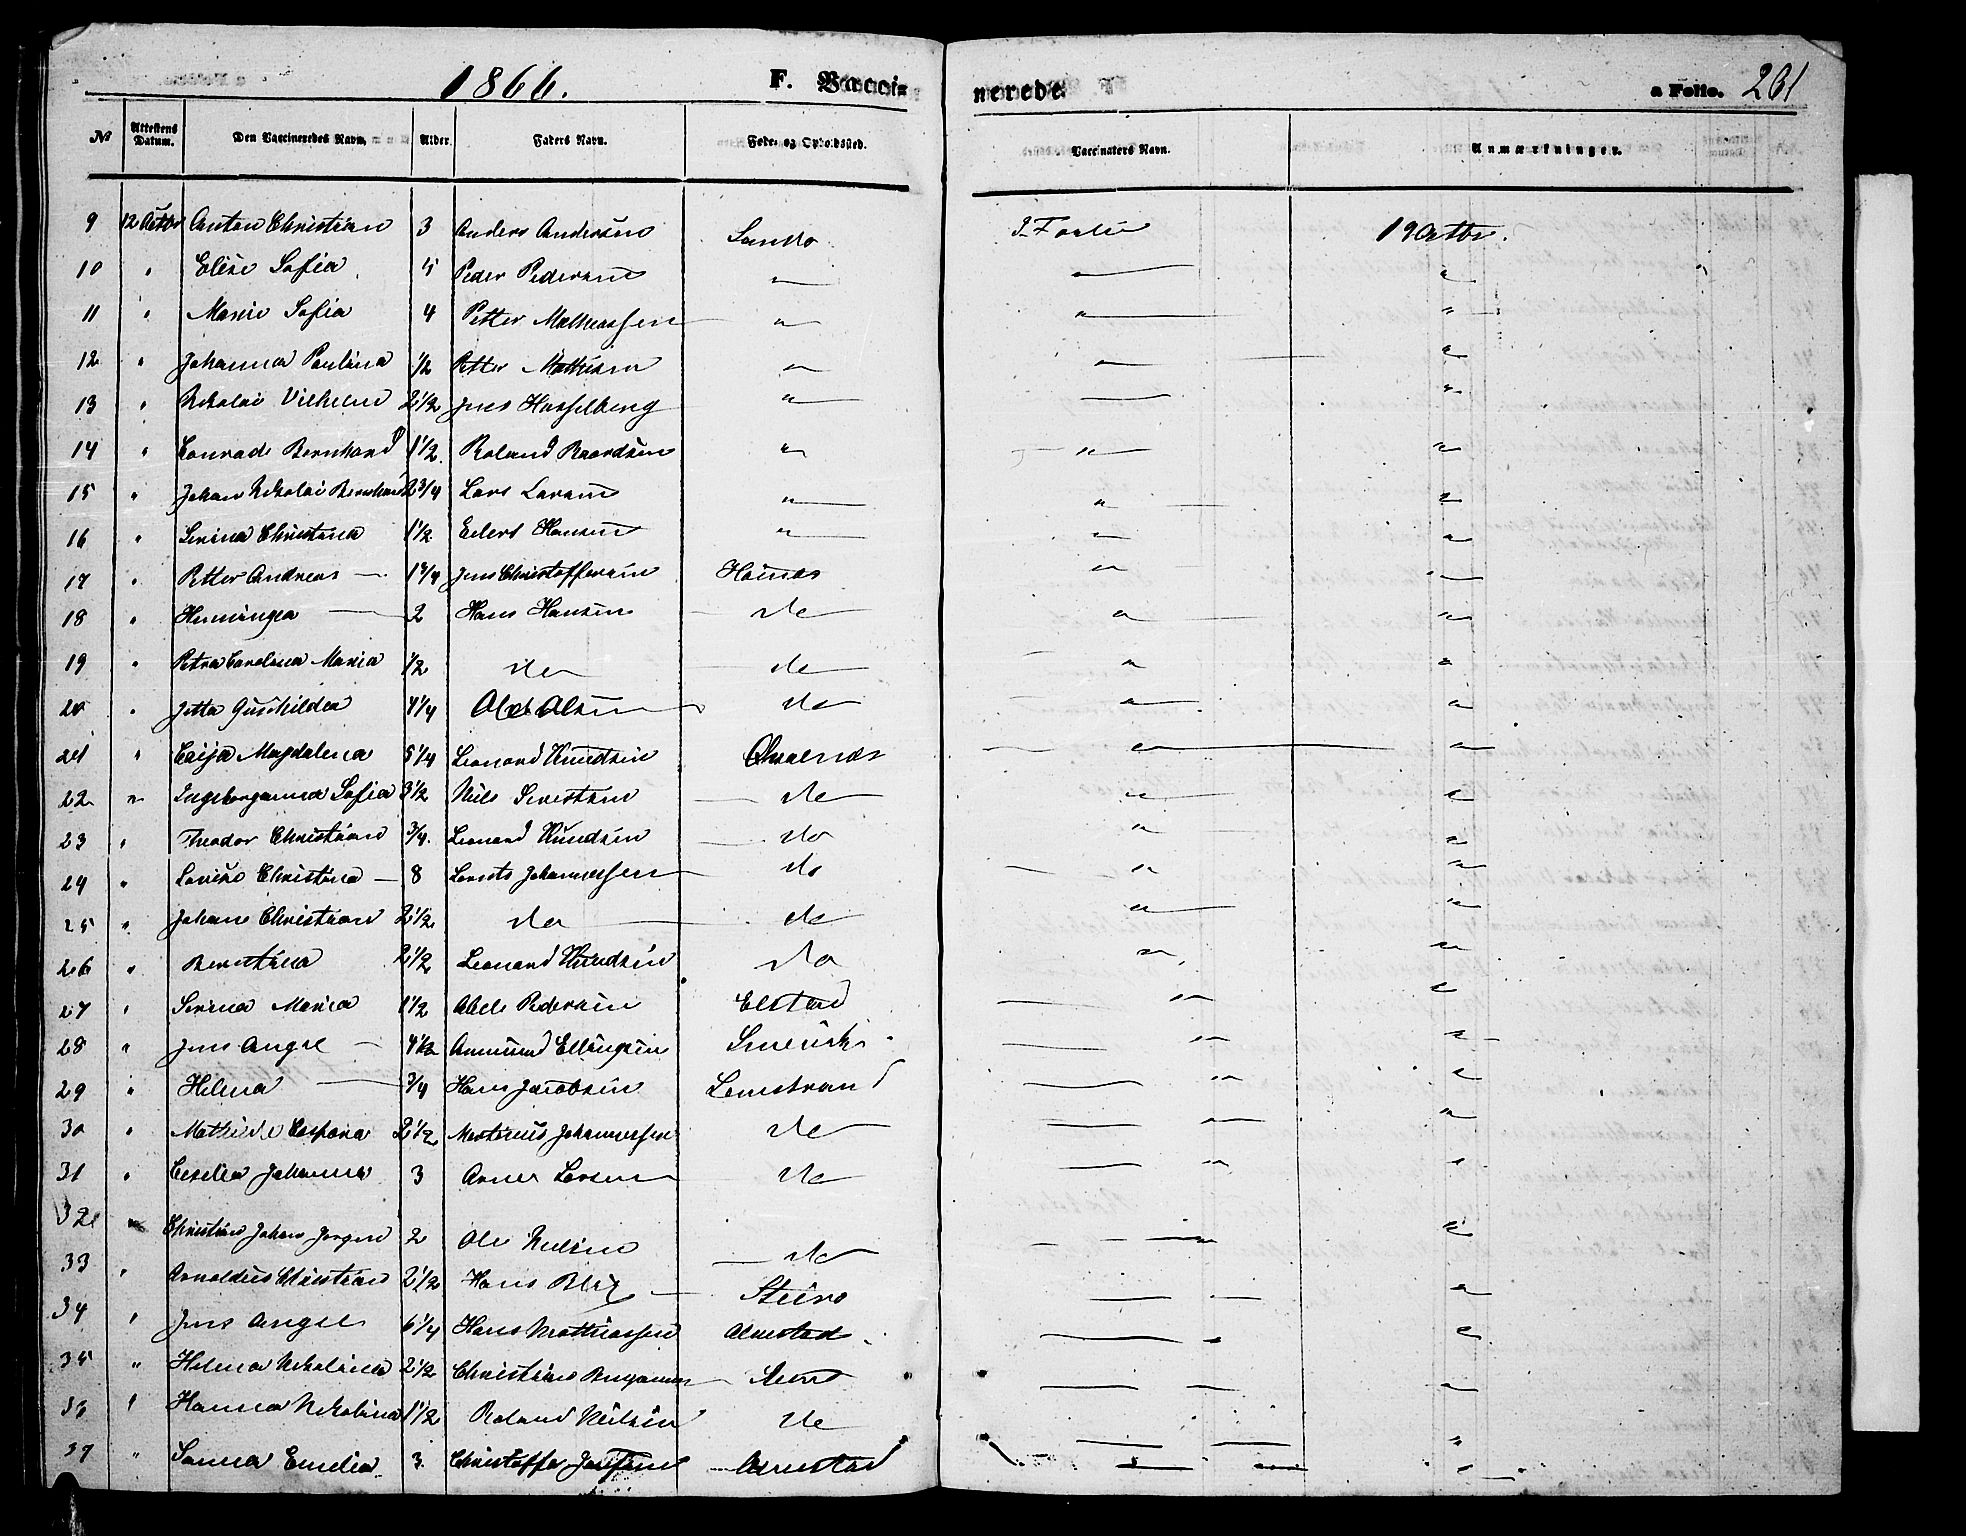 1866. F. Vacci- nerede a Folio. 261
№ Attestens Datum. Den Vaccineredes Navn. Alder. Faders Navn. Føde- og Opholdssted. Vaccinators Navn. Anmærkninger.
9 12 Octbr Anton Christian 3 Anders Andersen 19 Octbr.
10 " Elise Sofia Peder Pedersen " " "
11 " Marie Sofia 4 Petter Mathiassen " " "
12 " Johanna Paulina 1/2 Petter Mathisen " " "
13 " Nikolai Vilhelm 2 1/2 Jens Hasselberg " — "
14 " Conrad Bernhard 1 1/2 Roland Baardsen " " "
15 " Johan Nikolai Bernhard 2 3/4 Lars Larsen " " "
16 " Serina Christina 1 1/2 Eilert Hansen " " "
17 " Petter Andreas — Jens Christoffersen " "
18 " Henninga — 2 Hans Hansen do " "
19 " Petra Carolina Maria 1/2 do do " "
20 " Jetta Gunhilda 4 1/4 Olol Olsen do " "
21 " Magdalena 5 1/4 Leonard Knudsen " "
22 " Ingeborganna Sofia 3 1/2 Nils do " "
23 " Theodor Christian 3/4 Leonard Knudsen do " "
24 " Lovise Christina — 8 Lorents Johannessen do " "
25 " Johan Christian 2 1/2 do do " "
26 " Berntina 2 1/2 Leonard Knudsen do " "
27 " Serina Maria 1 1/2 Abel Pedersen Elstad " "
28 " Jens Angel — 4 1/2 Ammund Ellingsen " "
29 " Helena — 3/4 Hans Jacobsen Lenstrand " "
30 " Mathilde Caspara 2 1/2 Martinus Johannessen do " "
31 " Cesilia Johanna 3 Arnes Larsen do " "
32 " Christian Johan Jørgen 2 Ole Nilsen do " "
33 " Arnoldus Christian 2 1/2 Hans Blix Steiro — "
34 " Jens Angel 6 1/4 Hans Mathiassen — "
35 " Helena Nikolina 2 1/2 Christian Benjamin — "
36 " Hanna Nikolina 1 1/2 Roland Nilsen do — "
37 " Sanna Emelia 3 Christoffer — "